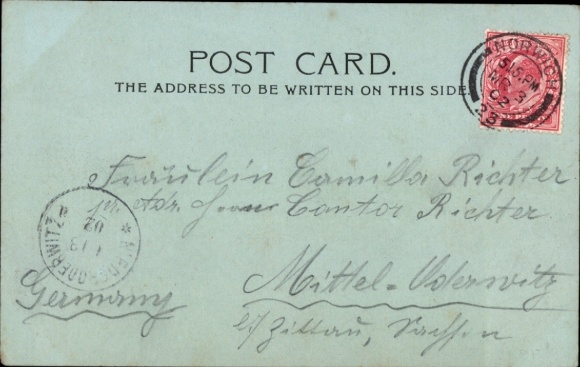 POST CARD.
THE ADDRESS TO BE WRITTEN ON THIS SIDE.
NORWICH
5.15 PM
02
28
Fräulein Camilla Richter
Adr. Herrn Cantor Richter
Mittel-Oderwitz
Germany
b/ Zittau, Sachsen